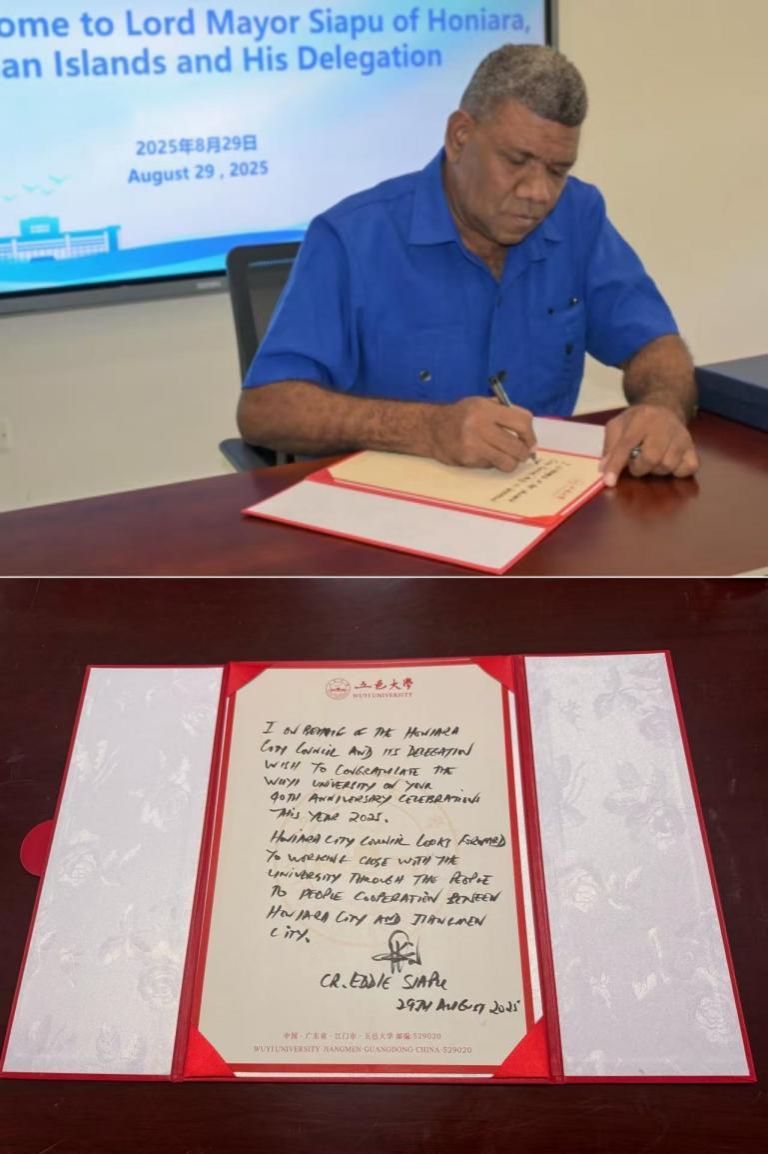 ome to Lord Mayor Siapu of Honiara,
an Islands and His Delegation
2025年8月29日
August 29 , 2025
五邑大學
WUYI UNIVERSITY
I ON BEHALF OF THE HONIARA
CITY COUNCIL AND ITS DELEGATION
WISH TO CONGRATULATE THE
WUYI UNIVERSITY ON YOUR
40TH ANNIVERSARY CELEBRATIONS
THIS YEAR 2025.
HONIARA CITY COUNCIL LOOKS FORWARD
TO WORKING CLOSE WITH THE
UNIVERSITY THROUGH THE PEOPLE
TO PEOPLE COOPERATION BETWEEN
HONIARA CITY AND JIANGMEN
CITY.
CR. EDDIE SIAPU
29TH AUGUST 2025
中国·广东省·江门市·五邑大学 邮编:529020
WUYI UNIVERSITY JIANGMEN·GUANGDONG·CHINA·529020